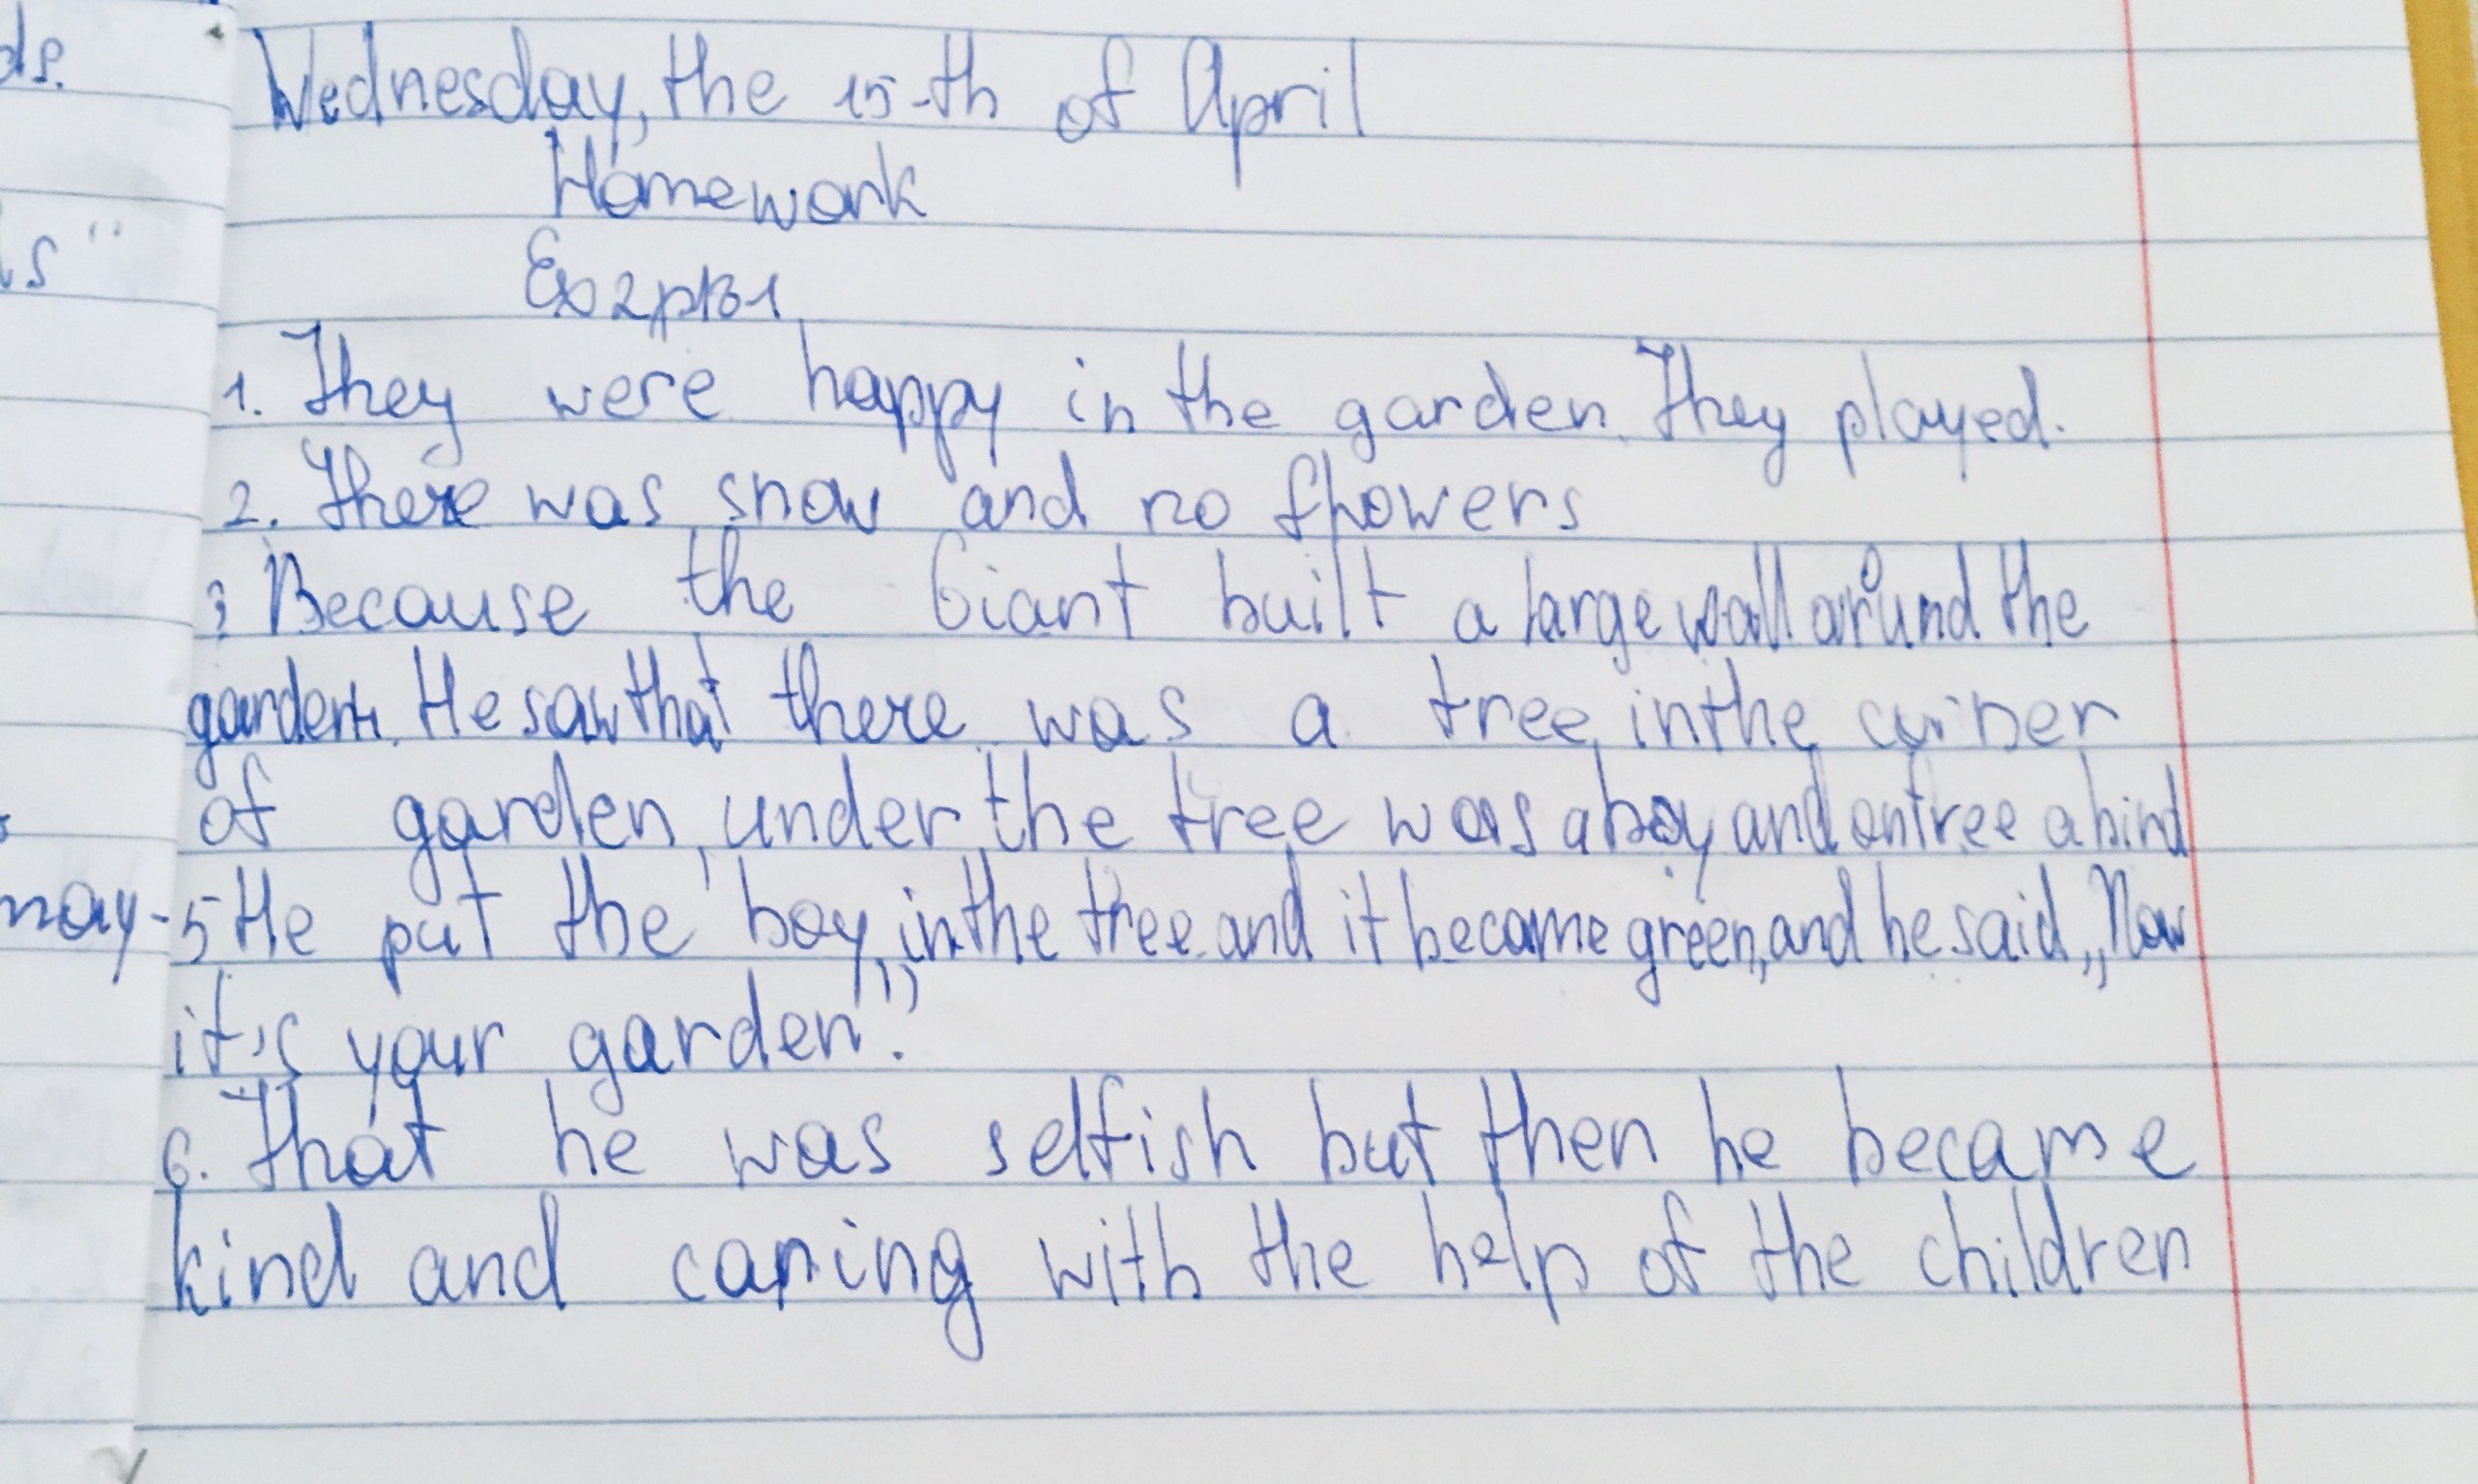 ds.
Wednesday, the 15-th of April
Homework
s"
Ex 2 p 131
1. They were happy in the garden. They played.
2. There was snow and no flowers
3 Because the Giant built a large wall around the
garden. He saw that there was a tree in the corner
of garden, under the tree was a boy and on tree a bird
may-
5 He put the boy in the tree and it became green, and he said „Now
it's your garden!"
6. That he was selfish but then he became
kind and caring with the help of the children